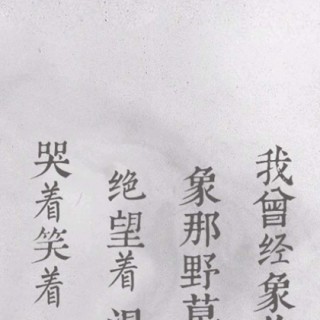 我曾经象
象那野
绝望着
哭着笑着